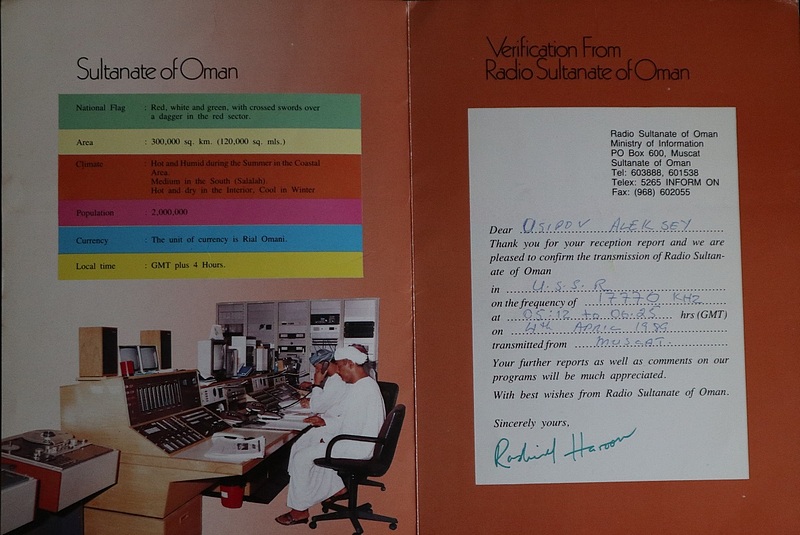 Sultanate of Oman
National Flag : Red, white and green, with crossed swords over
a dagger in the red sector.
Area : 300,000 sq. km. (120,000 sq. mls.)
Climate : Hot and Humid during the Summer in the Coastal
Area.
Medium in the South (Salalah).
Hot and dry in the Interior, Cool in Winter
Population : 2,000,000
Currency : The unit of currency is Rial Omani.
Local time : GMT plus 4 Hours.
Verification From
Radio Sultanate of Oman
Radio Sultanate of Oman
Ministry of Information
PO Box 600, Muscat
Sultanate of Oman
Tel: 603888, 601538
Telex: 5265 INFORM ON
Fax: (968) 602055
Dear OSIPOV ALEKSEY
Thank you for your reception report and we are
pleased to confirm the transmission of Radio Sultan-
ate of Oman
in U.S.S.R
on the frequency of 17770 KHZ
at 05:12 to 06:25 hrs (GMT)
on 4th APRIL 1989
transmitted from MUSCAT.
Your further reports as well as comments on our
programs will be much appreciated.
With best wishes from Radio Sultanate of Oman.
Sincerely yours,
Haroon